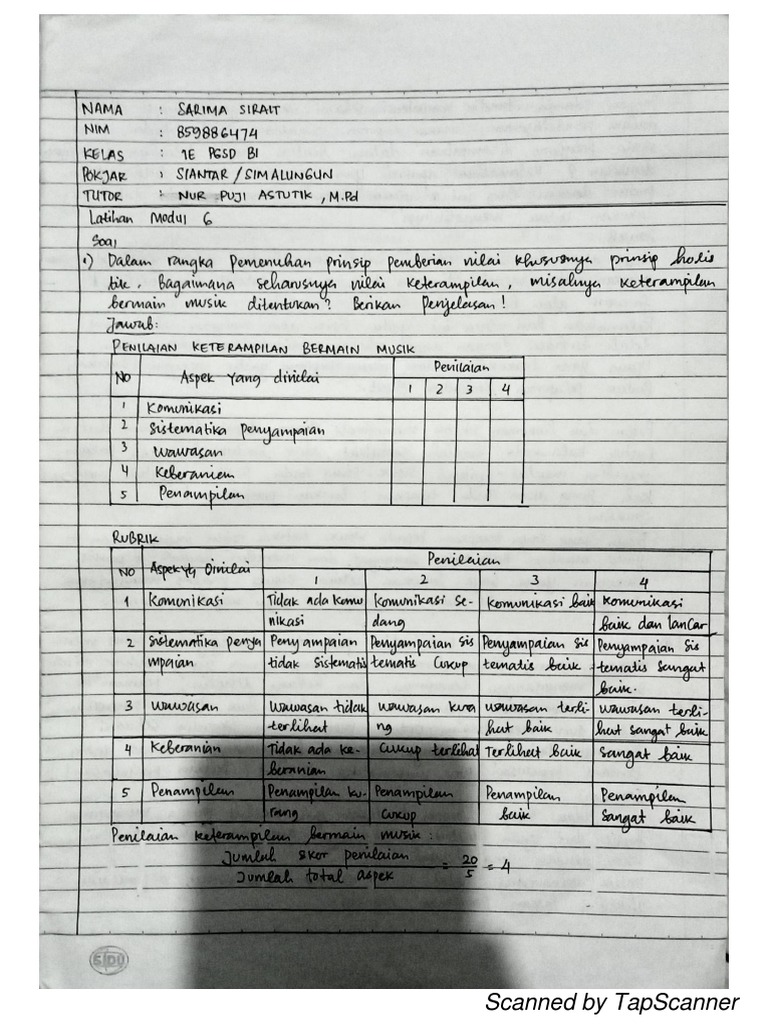 NAMA : SARIMA SIRAIT
NIM : 859886474
KELAS : 1E PGSD BI
POKJAR : SIANTAR / SIMALUNGUN
TUTOR : NUR PUJI ASTUTIK, M.Pd
Latihan Modul 6
Soal
1) Dalam rangka pemenuhan prinsip pemberian nilai khususnya prinsip holis
tik. Bagaimana seharusnya nilai keterampilan, misalnya keterampilan
bermain musik ditentukan? Berikan Penjelasan!
Jawab:
PENILAIAN KETERAMPILAN BERMAIN MUSIK
NO Aspek yang dinilai Penilaian
1 2 3 4
1 Komunikasi
2 Sistematika penyampaian
3 Wawasan
4 Keberanian
5 Penampilan
RUBRIK
NO Aspek yg Dinilai Penilaian
1 2 3 4
1 Komunikasi Tidak ada komu Komunikasi se- Komunikasi baik Komunikasi
nikasi dang baik dan lancar
2 Sistematika penya Penyampaian Penyampaian Sis Penyampaian Sis Penyampaian Sis
mpaian tidak sistematis tematis cukup tematis baik. tematis sangat
baik.
3 Wawasan Wawasan tidak Wawasan kura Wawasan terli- Wawasan terli-
terlihat ng hat baik hat sangat baik
4 Keberanian Tidak ada ke- Cukup terlihat Terlihat baik Sangat baik
beranian
5 Penampilan Penampilan ku- Penampilan Penampilan Penampilan
rang cukup baik sangat baik
Penilaian keterampilan bermain musik :
Jumlah skor penilaian
Jumlah total aspek = 20/5 = 4
SIDU
Scanned by TapScanner